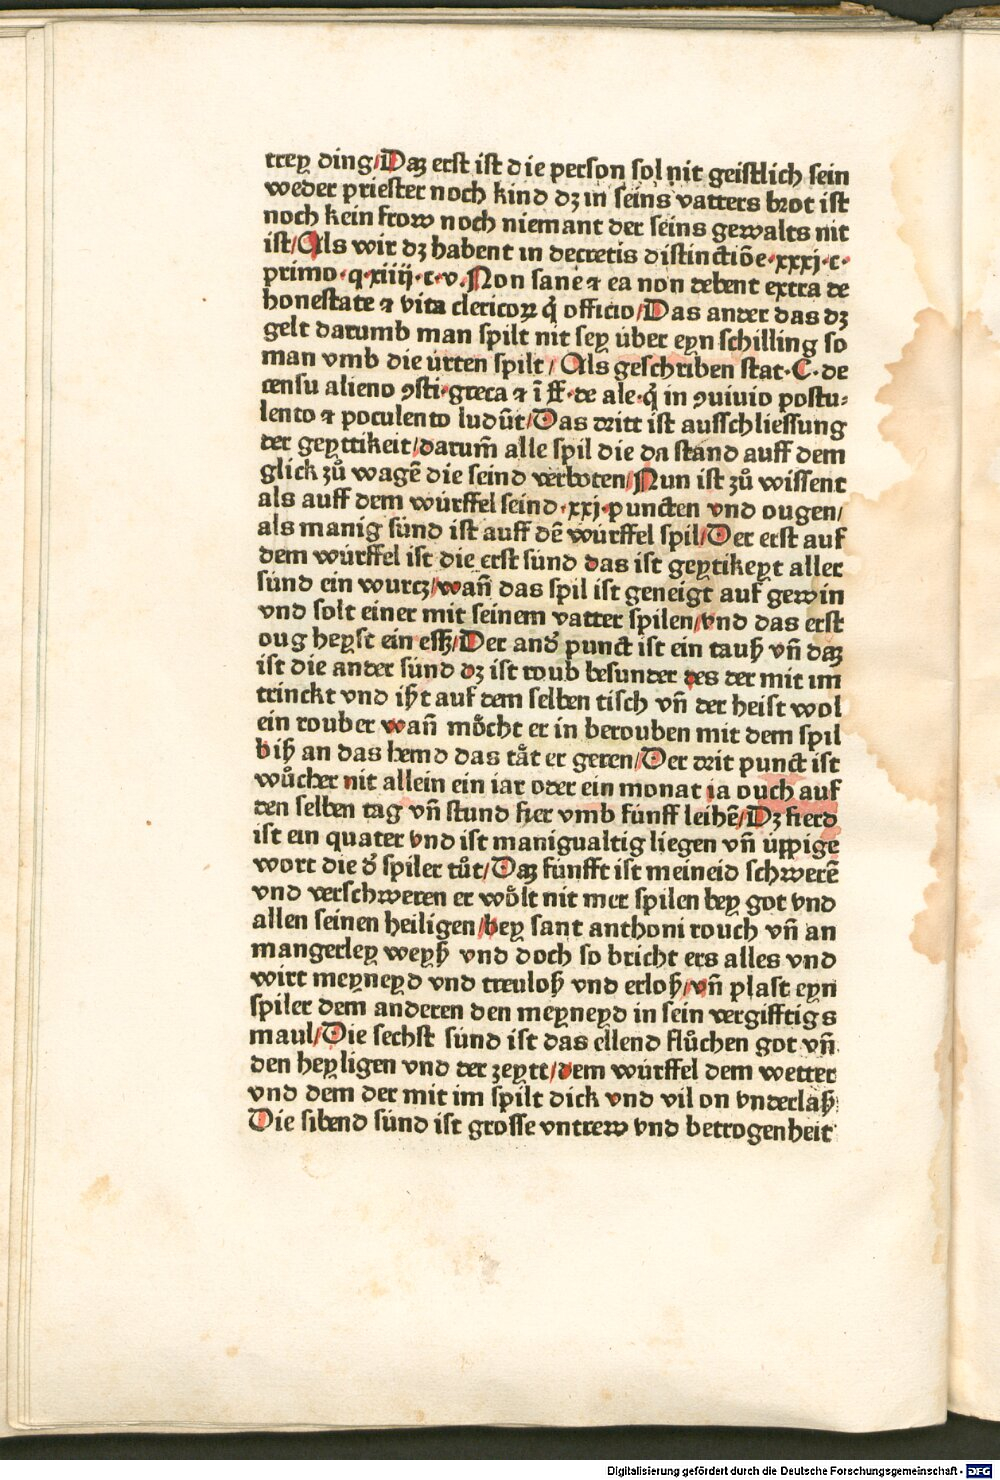 trey ding/Daꝫ erst ist die person sol nit geistlich sein
weder priester noch kind dꝫ in seins vatters brot ist
noch kein frow noch niemant der seins gewalts nit
ist/Als wir dꝫ habent in decretis distinctiõe·xxxj·c·
primo·q·xiiij·c·v.Non sane ⁊ ea non debent extra de
honestate ⁊ vita clericoꝝ q̃ officio/Das ander das dꝫ
gelt darumb man spilt nit sey über eyn schilling so
man vmb die ürten spilt/Als geschriben stat·C·de
censu alieno ꝯsti·greca ⁊ ĩ ff·de ale·q̃ in ꝯuiuio postu⸗
lento ⁊ poculento ludũt/Das dritt ist ausschliessung
der geyttikeit/darum̃ alle spil die da stand auff dem
glick zů wagẽ die seind verboten/Nun ist zů wissent
als auff dem würffel seind·xxj·puncten vnd ougen/
als manig sünd ist auff dẽ würffel spil/Der erst auf
dem würffel ist die erst sünd das ist geytikeyt aller
sünd ein wurcz/wan̄ das spil ist geneigt auf gewin
vnd solt einer mit seinem vatter spilen/vnd das erst
oug heyst ein essꝫ/Der and̕ punct ist ein tauß vn̄ daꝫ
ist die ander sünd dꝫ ist roub besunder des der mit im
trinckt vnd ißt auf dem selben tisch vn̄ der heist wol
ein rouber wan̄ möcht er in berouben mit dem spil
biß an das hemd das tåt er geren/Der drit punct ist
wůcher nit allein ein iar oder ein monat ia ouch auf
den selben tag vn̄ stund fier vmb fünff leihẽ/Dꝫ fierd
ist ein quater vnd ist manigualtig liegen vn̄ üppige
wort die d̕ spiler tůt/Daꝫ fünfft ist meineid schwerẽ
vnd verschweren er wölt nit mer spilen bey got vnd
allen seinen heiligen/bey sant anthoni rouch vn̄ an
mangerley weyß vnd doch so bricht ers alles vnd
wirt meyneyd vnd treuloß vnd erloß/vn̄ plast eyn
spiler dem anderen den meyneyd in sein vergifftigs
maul/Die sechst sünd ist das ellend flůchen got vn̄
den heyligen vnd der zeytt/dem würffel dem wetter
vnd dem der mit im spilt dick vnd vil on vnderlaß
Die sibend sünd ist grosse vntrew vnd betrogenheit
Digitalisierung gefördert durch die Deutsche Forschungsgemeinschaft - DFG